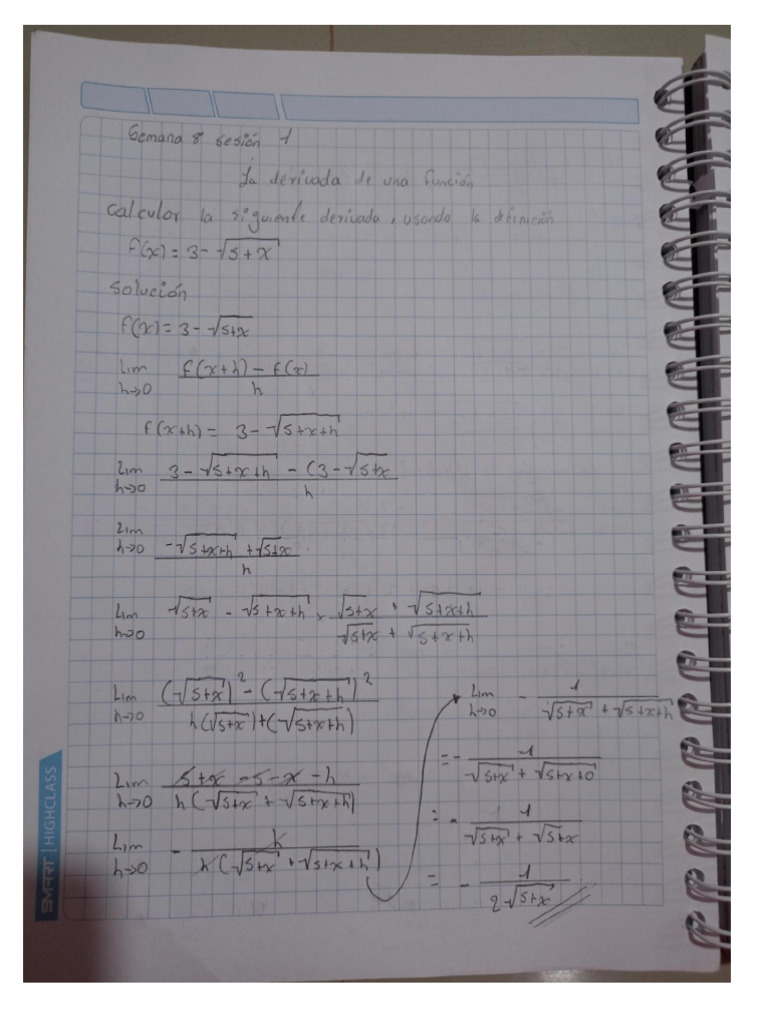 Semana 8 sesión 1
La derivada de una función
Calcular la siguiente derivada, usando la definición
f(x) = 3 - √5+x
Solución
f(x) = 3 - √5+x
Lim h→0 f(x+h) - f(x) / h
f(x+h) = 3 - √5+x+h
Lim h→0 3 - √5+x+h - (3 - √5+x / h
Lim h→0 -√5+x+h + √5+x / h
Lim h→0 √5+x - √5+x+h × √5+x + √5+x+h / √5+x + √5+x+h
Lim h→0 (√5+x)² - (√5+x+h)² / h(√5+x)+(√5+x+h)
Lim h→0 5+x - 5 - x - h / h(√5+x + √5+x+h)
Lim h→0 - h / h(√5+x + √5+x+h)
Lim h→0 - 1 / √5+x + √5+x+h
= - 1 / √5+x + √5+x+0
= - 1 / √5+x + √5+x
= - 1 / 2√5+x
SMART | HIGHCLASS